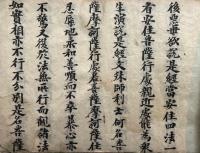 後惡世欲說是經當安住四法一
者安住菩薩行處親近處能為衆
生演說是經文殊師利云何名菩
薩摩訶薩行處若菩薩摩訶薩住
忍辱地柔和善順而不卒暴心亦
不驚又復於法無所行而觀諸法
如實相亦不行不分別是名菩薩